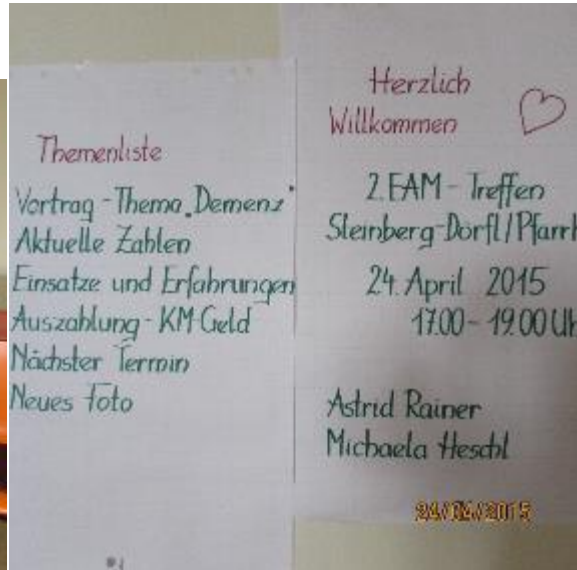 Themenliste
Vortrag - Thema „Demenz"
Aktuelle Zahlen
Einsätze und Erfahrungen
Auszahlung - KM Geld
Nächster Termin
Neues Foto
Herzlich
Willkommen
2. FAM - Treffen
Steinberg-Dörfl / Pfarrh
24. April 2015
17.00 - 19.00 Uh
Astrid Rainer
Michaela Heschl
24/04/2015